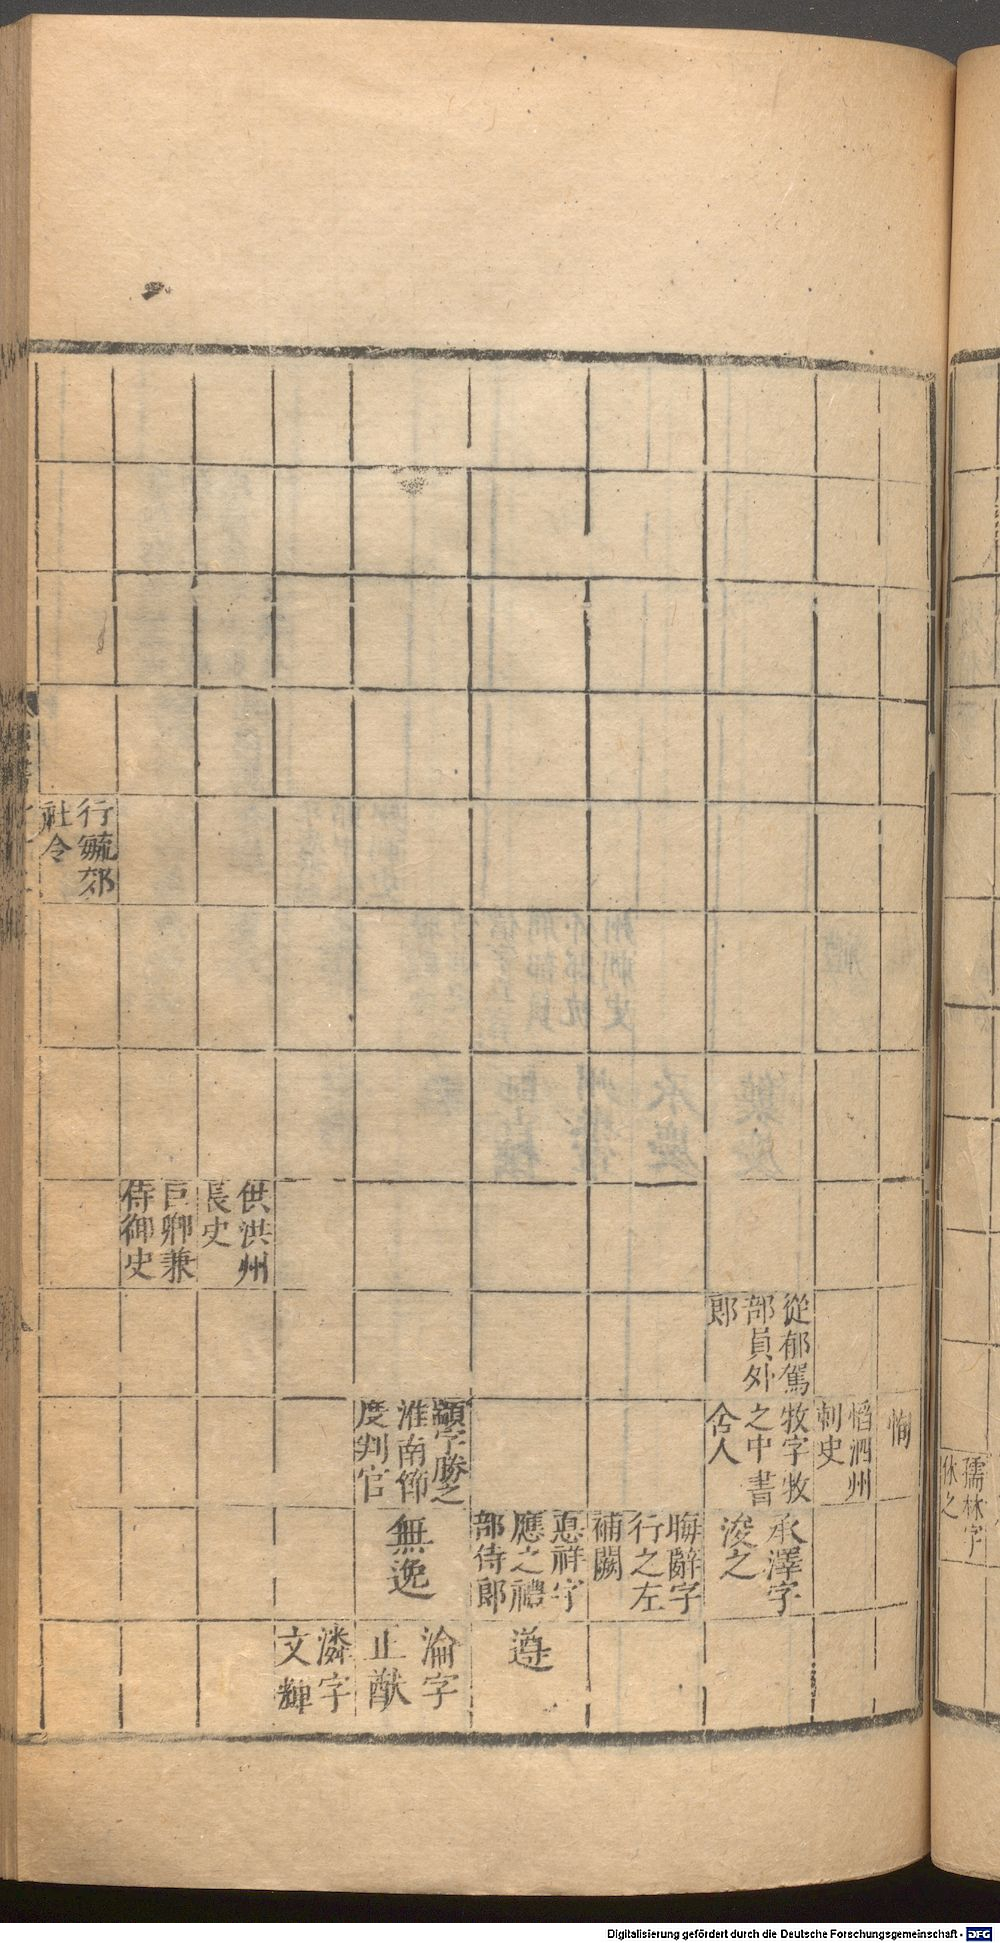 恂
慆泗州
刺史
從郁駕
部員外
郎
牧字牧
之中書
舎人
承澤字
浚之
晦辭字
行之左
補闕
惪祥字
應之禮
部侍郎
遵
顗字勝之
淮南節
度判官
無逸
淪字
止猷
潾字
文輝
供洪州
長史
巨卿兼
侍御史
行毓郊
社令
孺林字
休之
Digitalisierung gefördert durch die Deutsche Forschungsgemeinschaft - DFG